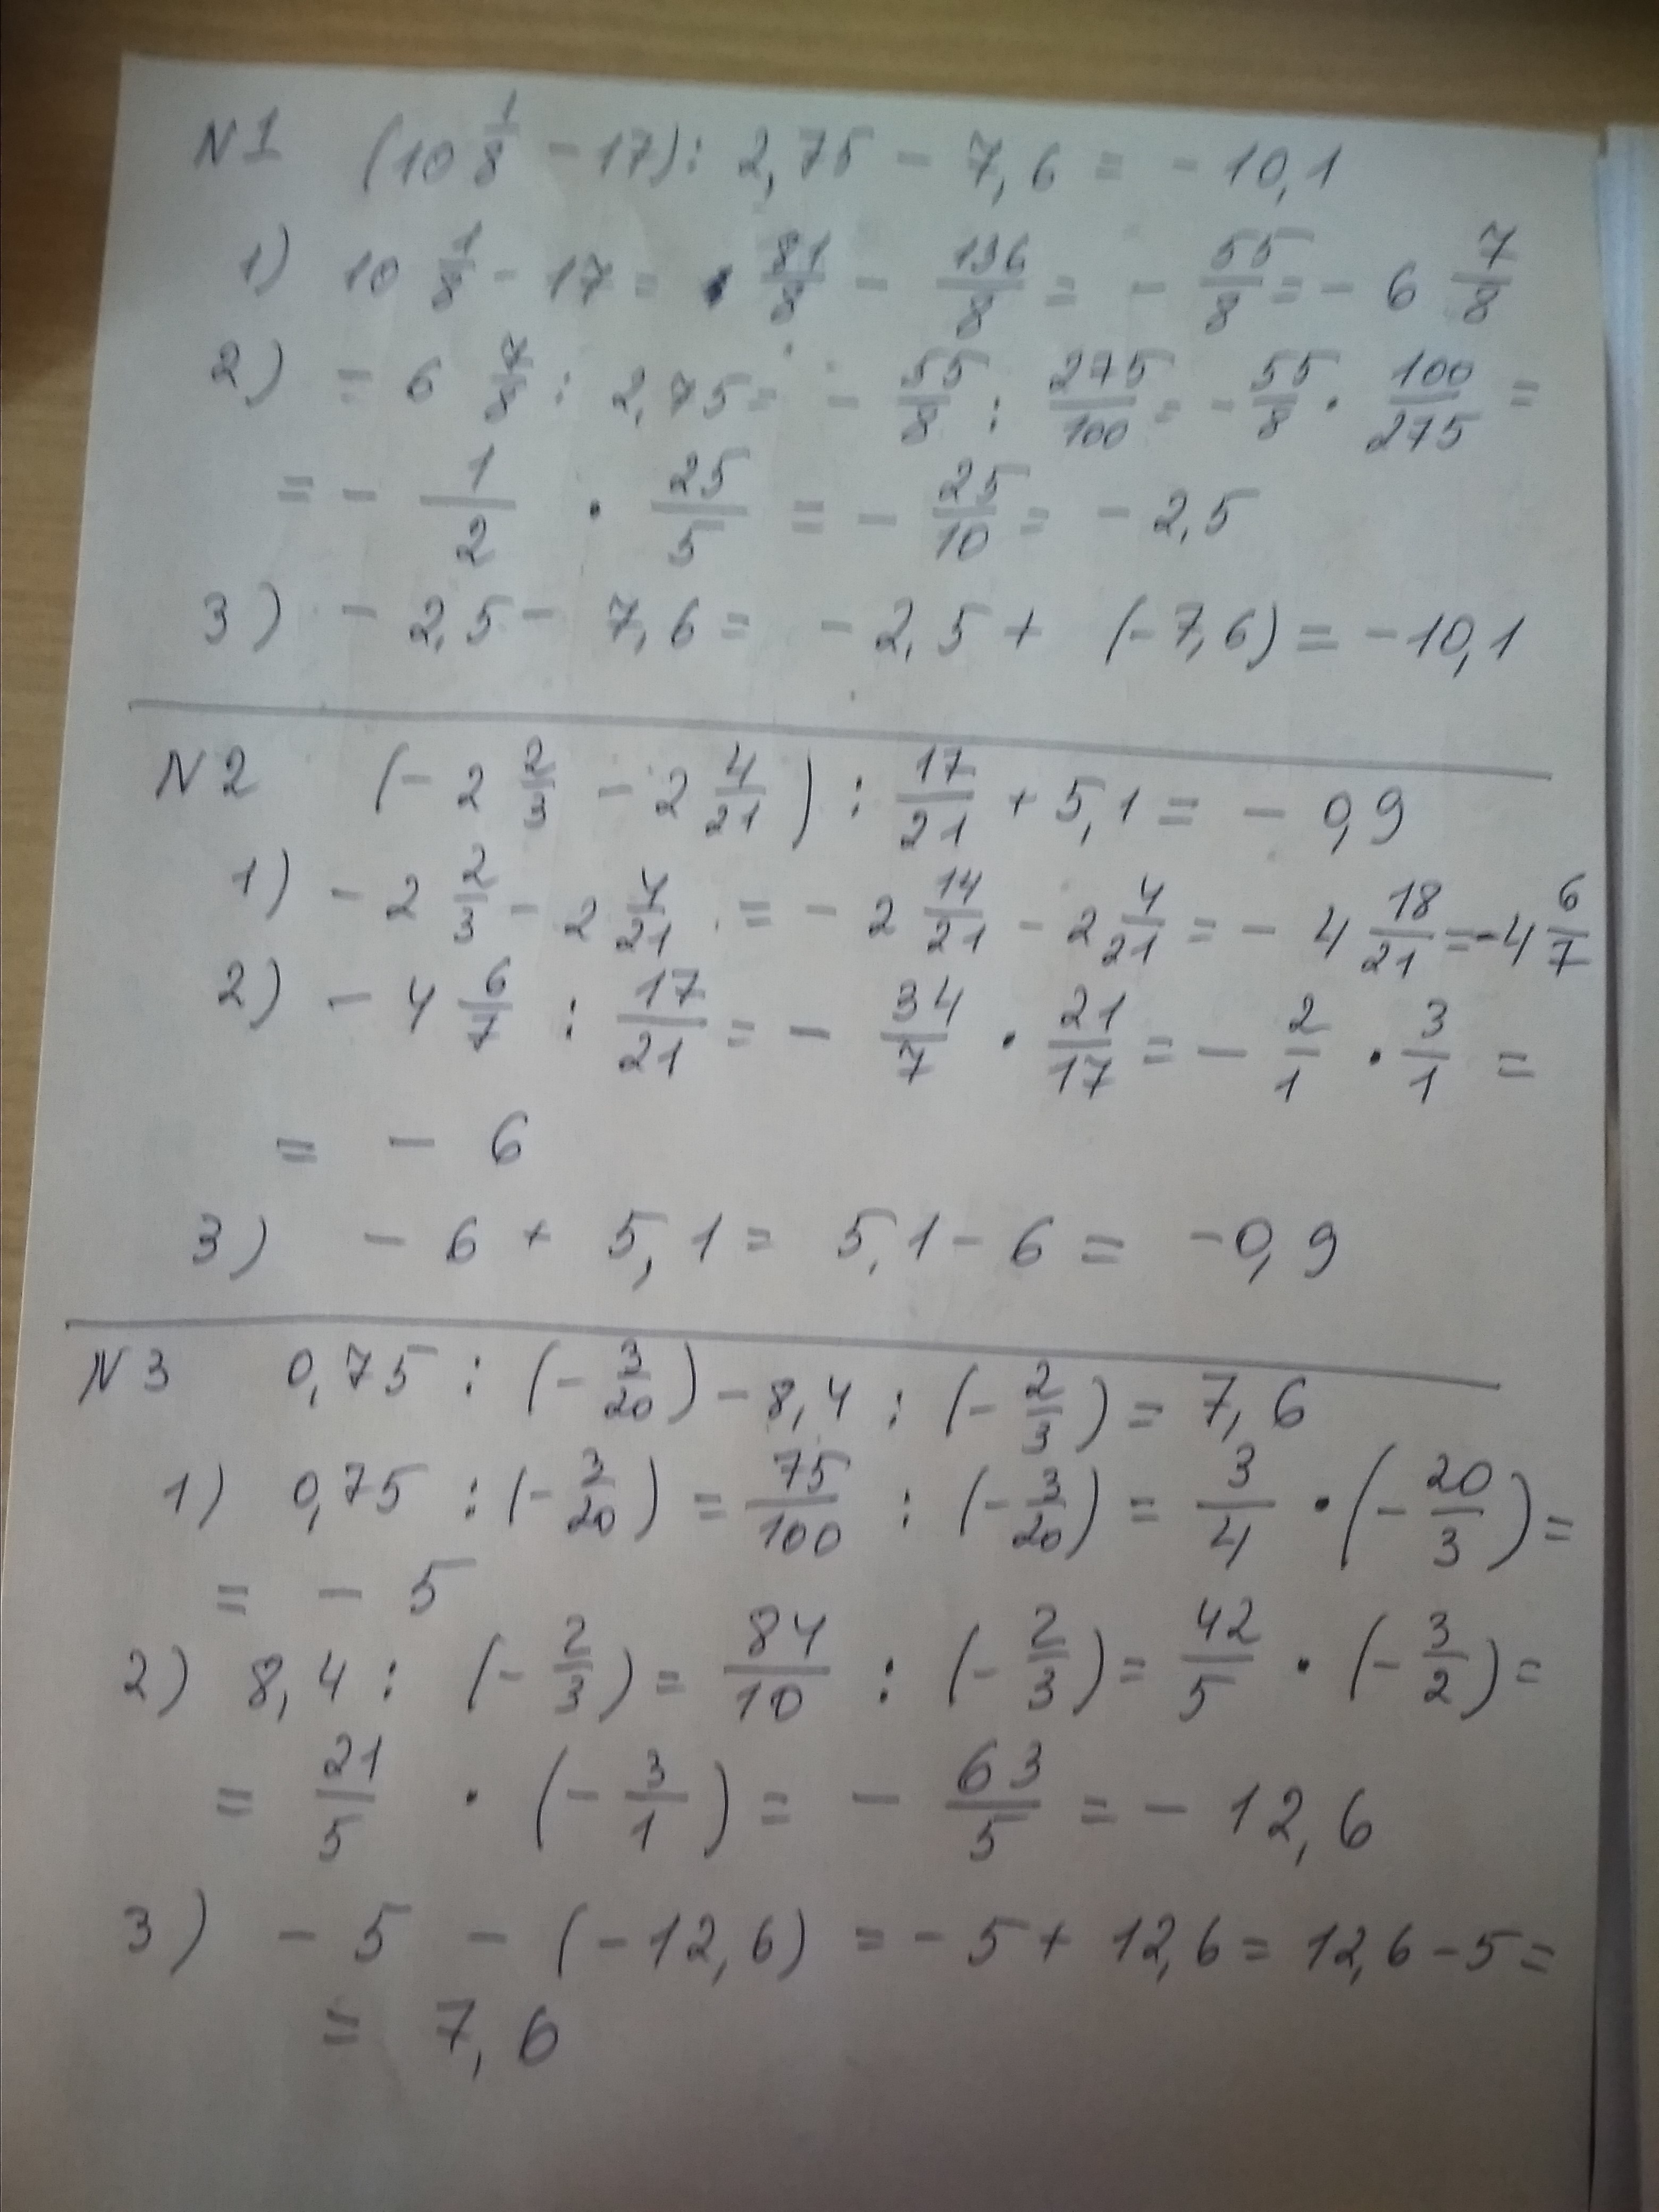 N1 (10 1/8 - 17) : 2,75 - 7,6 = - 10,1
1) 10 1/8 - 17 = 81/8 - 136/8 = - 55/8 = - 6 7/8
2) - 6 7/8 : 2,75 = - 55/8 : 275/100 = - 55/8 · 100/275 =
= - 1/2 · 25/5 = - 25/10 = - 2,5
3) - 2,5 - 7,6 = - 2,5 + (-7,6) = -10,1
N2 (- 2 2/3 - 2 4/21) : 17/21 + 5,1 = - 0,9
1) - 2 2/3 - 2 4/21 = - 2 14/21 - 2 4/21 = - 4 18/21 = -4 6/7
2) - 4 6/7 : 17/21 = - 34/7 · 21/17 = - 2/1 · 3/1 =
= - 6
3) - 6 + 5,1 = 5,1 - 6 = -0,9
N3 0,75 : (- 3/20) - 8,4 : (- 2/3) = 7,6
1) 0,75 : (- 3/20) = 75/100 : (- 3/20) = 3/4 · (- 20/3) =
= - 5
2) 8,4 : (- 2/3) = 84/10 : (- 2/3) = 42/5 · (- 3/2) =
= 21/5 · (- 3/1) = - 63/5 = - 12,6
3) - 5 - (-12,6) = - 5 + 12,6 = 12,6 - 5 =
= 7,6